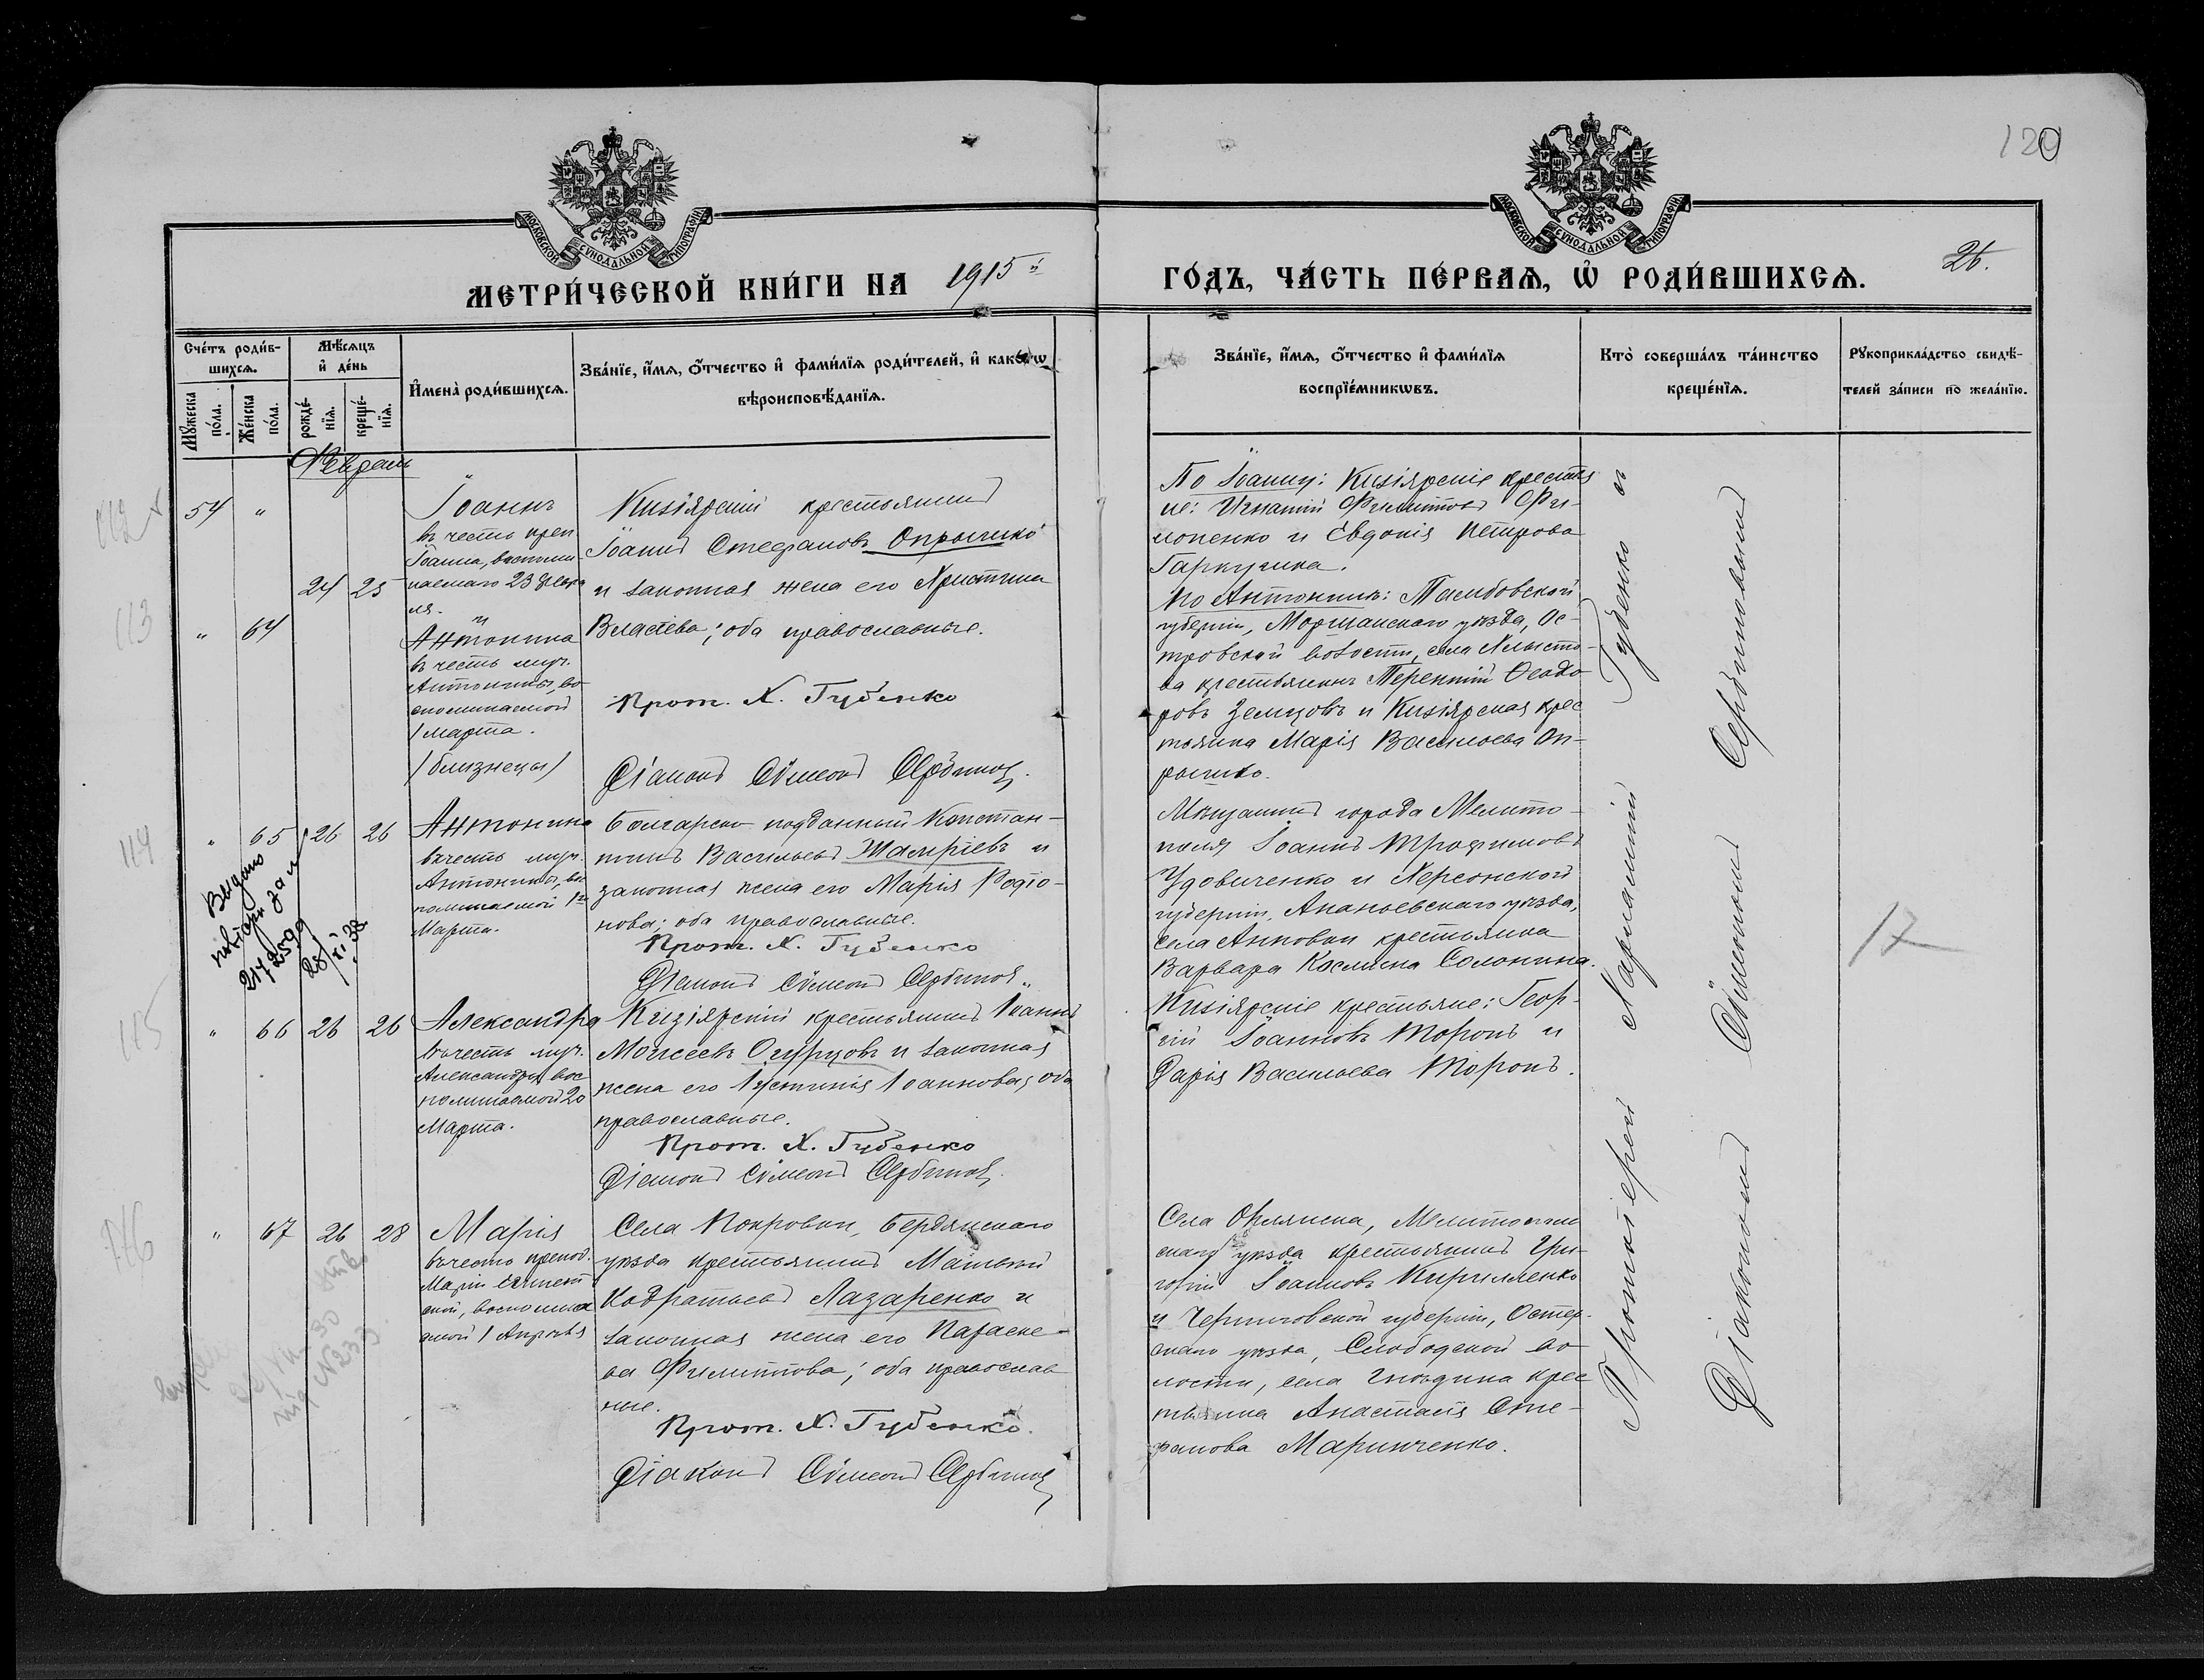 120
МОСКОВСКОЙ СУНОДАЛЬНОЙ ТИПОГРАФІИ
МОСКОВСКОЙ СУНОДАЛЬНОЙ ТИПОГРАФІИ
МЕТРИ́ЧЕСКОЙ КНИ́ГИ НА 1915й
ГО́ДЪ, ЧА́СТЬ ПЕ́РВАѦ, Ѡ҆ РОДИ́ВШИХСѦ.
26.
Сче́тъ роди́в-
шихсѧ.
Мꙋ́жеска по́ла.
Же́нска по́ла.
Мѣ́сѧцъ
и҆ де́нь
рожде́-
нїѧ.
креще́-
нїѧ.
И҆мена̀ роди́вшихсѧ.
Зва́нїе, и҆́мѧ, ѻ҆́тчество и҆ фами́лїѧ роди́телей, и҆ како́гѡ
вѣроисповѣ́данїѧ.
Зва́нїе, и҆́мѧ, ѻ҆́тчество и҆ фами́лїѧ
воспрїе́мникѡвъ.
Кто̀ соверша́лъ та́инство
креще́нїѧ.
Рꙋкоприкла́дство свидѣ́-
телей за́писи по жела́нїю.
Февраль
112
54 "
Іоаннъ
въ честь преп
Іоанна, воспоми
наемаго 23 февра
ля.
24 25
и
113
" 64
Антонина
въ честь муч.
Антонины, во
споминаемой
1 марта.
(близнецы)
Кизіярскій крестьянинъ
Іоаннъ Стефановъ Опрышко
и законная жена его Христина
Власіева; оба православные.
Прот. Х. Губенко
Діаконъ Сѵмеонъ Сербиновъ.
По Іоанну: Кизіярскіе крестья
не: Игнатій Филипповъ Фи-
лоненко и Евдокія Петрова
Гаркушина.
По Антонинѣ: Тамбовской
губерніи, Моршанскаго уѣзда, Ос-
тровской волости, села Хлысто-
ва крестьянинъ Терентій Ѳеодо
ровъ Земцовъ и Кизіярская крес
тьянка Марія Васильева Оп-
рышко.
114
" 65 26 26
Антонина
въ честь муч.
Антонины, вос
поминаемой 1го
Марта.
Видано
217259
28/ІІ 38
Болгарско-подданный Констан-
тинъ Васильевъ Жамріевъ и
законная жена его Марія Родіо-
нова; оба православные.
Прот. Х. Губенко
Діаконъ Сѵмеонъ Сербиновъ.
Мѣщанинъ города Мелито-
поля Іоаннъ Трофимовъ
Удовиченко и Херсонской
губерніи, Ананьевскаго уѣзда,
села Анновки крестьянка
Варвара Космина Солонина.
17
115
" 66 26 26
Александра
въ честь муч.
Александры, вос
поминаемой 20
Марта.
Кизіярскій крестьянинъ Іоаннъ
Моисеевъ Огурцовъ и законная
жена его Іустинія Іоаннова; оба
православные.
Прот. Х. Губенко
Діаконъ Сѵмеонъ Сербиновъ.
Кизіярскіе крестьяне: Геор-
гій Іоанновъ Моронъ и
Дарія Васильева Моронъ.
116
" 67 26 28
Марія
въ честь препод.
Маріи Египет
ской, воспомина
емой 1 Апрѣля
Села Покровки, Бердянскаго
уѣзда крестьянинъ Матѳей
Кодратьевъ Лазаренко и
законная жена его Параске-
ва Филиппова; оба православ
ные.
Прот. Х. Губенко.
Діаконъ Сѵмеонъ Сербиновъ
Села Орлянска, Мелитополь
скаго уѣзда крестьянинъ Гри-
горій Іоанновъ Кириленко
и Черниговской губерніи, Остер-
скаго уѣзда, Слободской во-
лости, села Гнѣдина крес
тьянка Анастасія Сте-
фанова Маринченко.
Протоіерей Харлампій Губенко съ
Діакономъ Сѵмеономъ Сербиновымъ